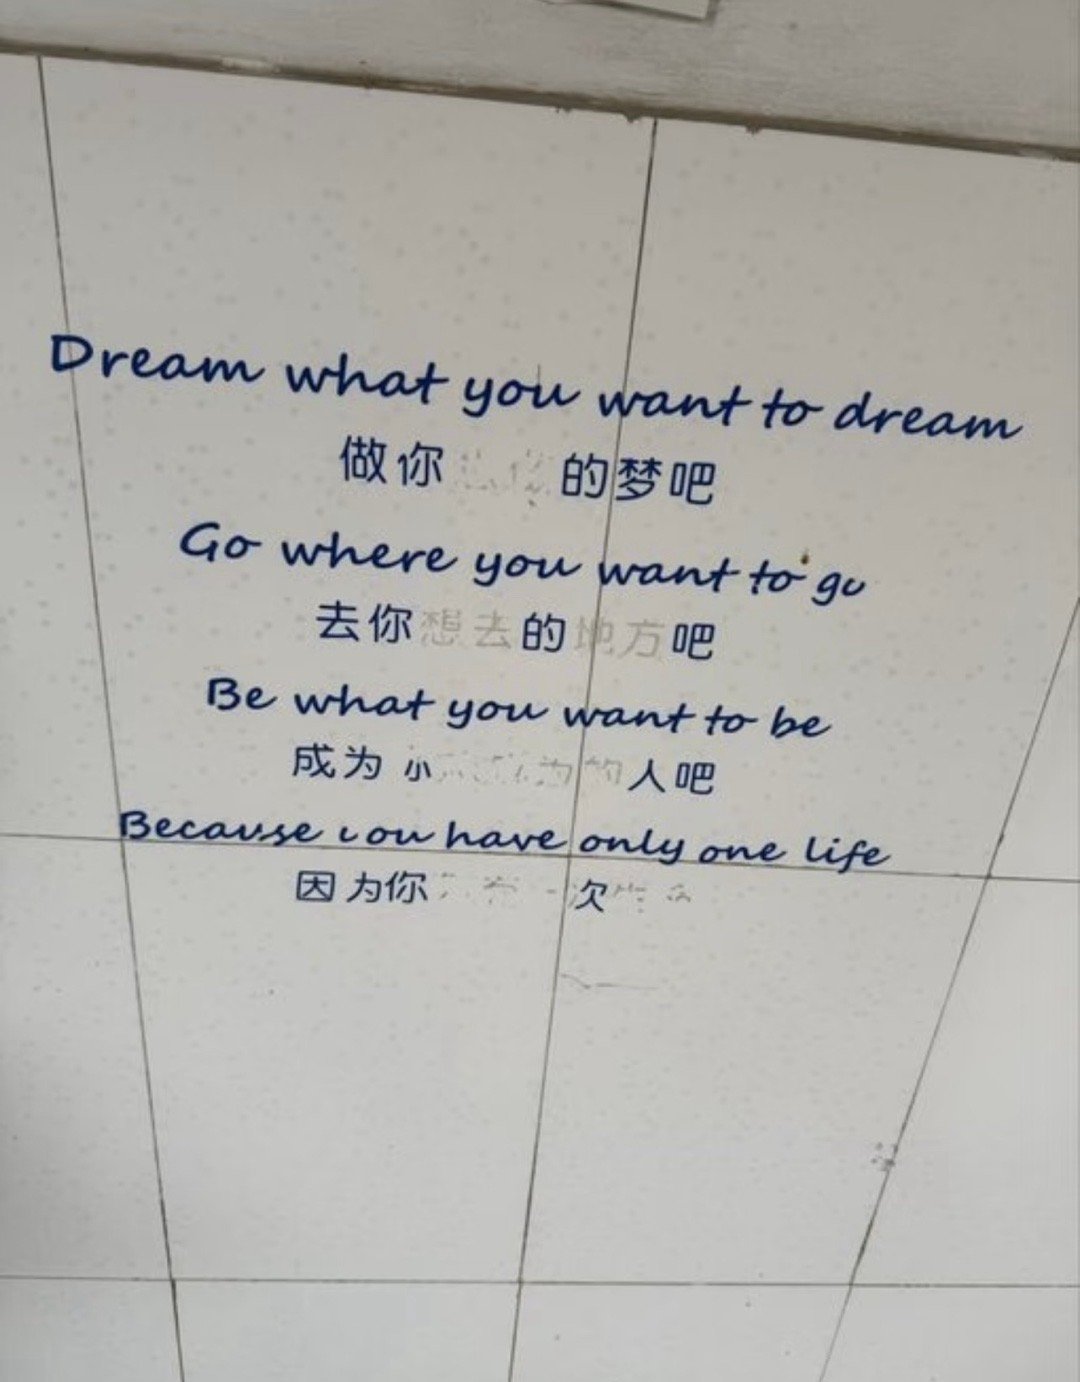 Dream what you want to dream
做你 的梦吧
Go where you want to go
去你想去的地方吧
Be what you want to be
成为 人吧
Because you have only one life
因为你 次